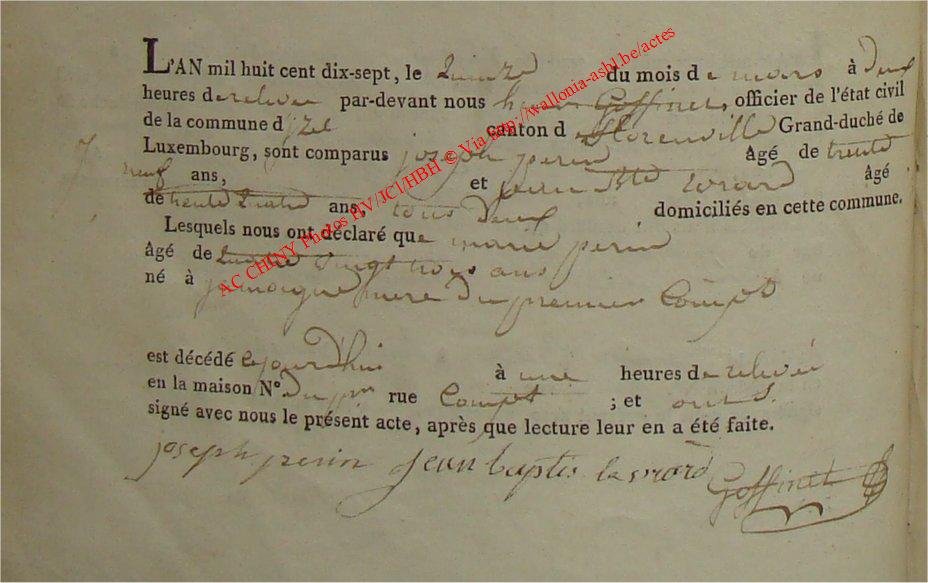 L'AN mil huit cent dix-sept, le quinze du mois de mars à deux
heures de relevée par-devant nous henri Goffinet, officier de l'état civil
de la commune d'jzel canton de florenville Grand-duché de
Luxembourg, sont comparus joseph perin âgé de trente
neuf ans, et jean Bte âgé
de trente quatre ans, tous deux domiciliés en cette commune.
Lesquels nous ont déclaré que marie perin
âgé de quatre vingt trois ans
né à jamoigne mere du premier Compt
est décédé cejourd'hui à une heures de relevée
en la maison N° du pr rue Compt ; et ont
signé avec nous le présent acte, après que lecture leur en a été faite.
joseph perin jean baptis Goffinet
AC CHINY Photos HV/JC1/HBH © Via http://wallonia-asbl.be/actes